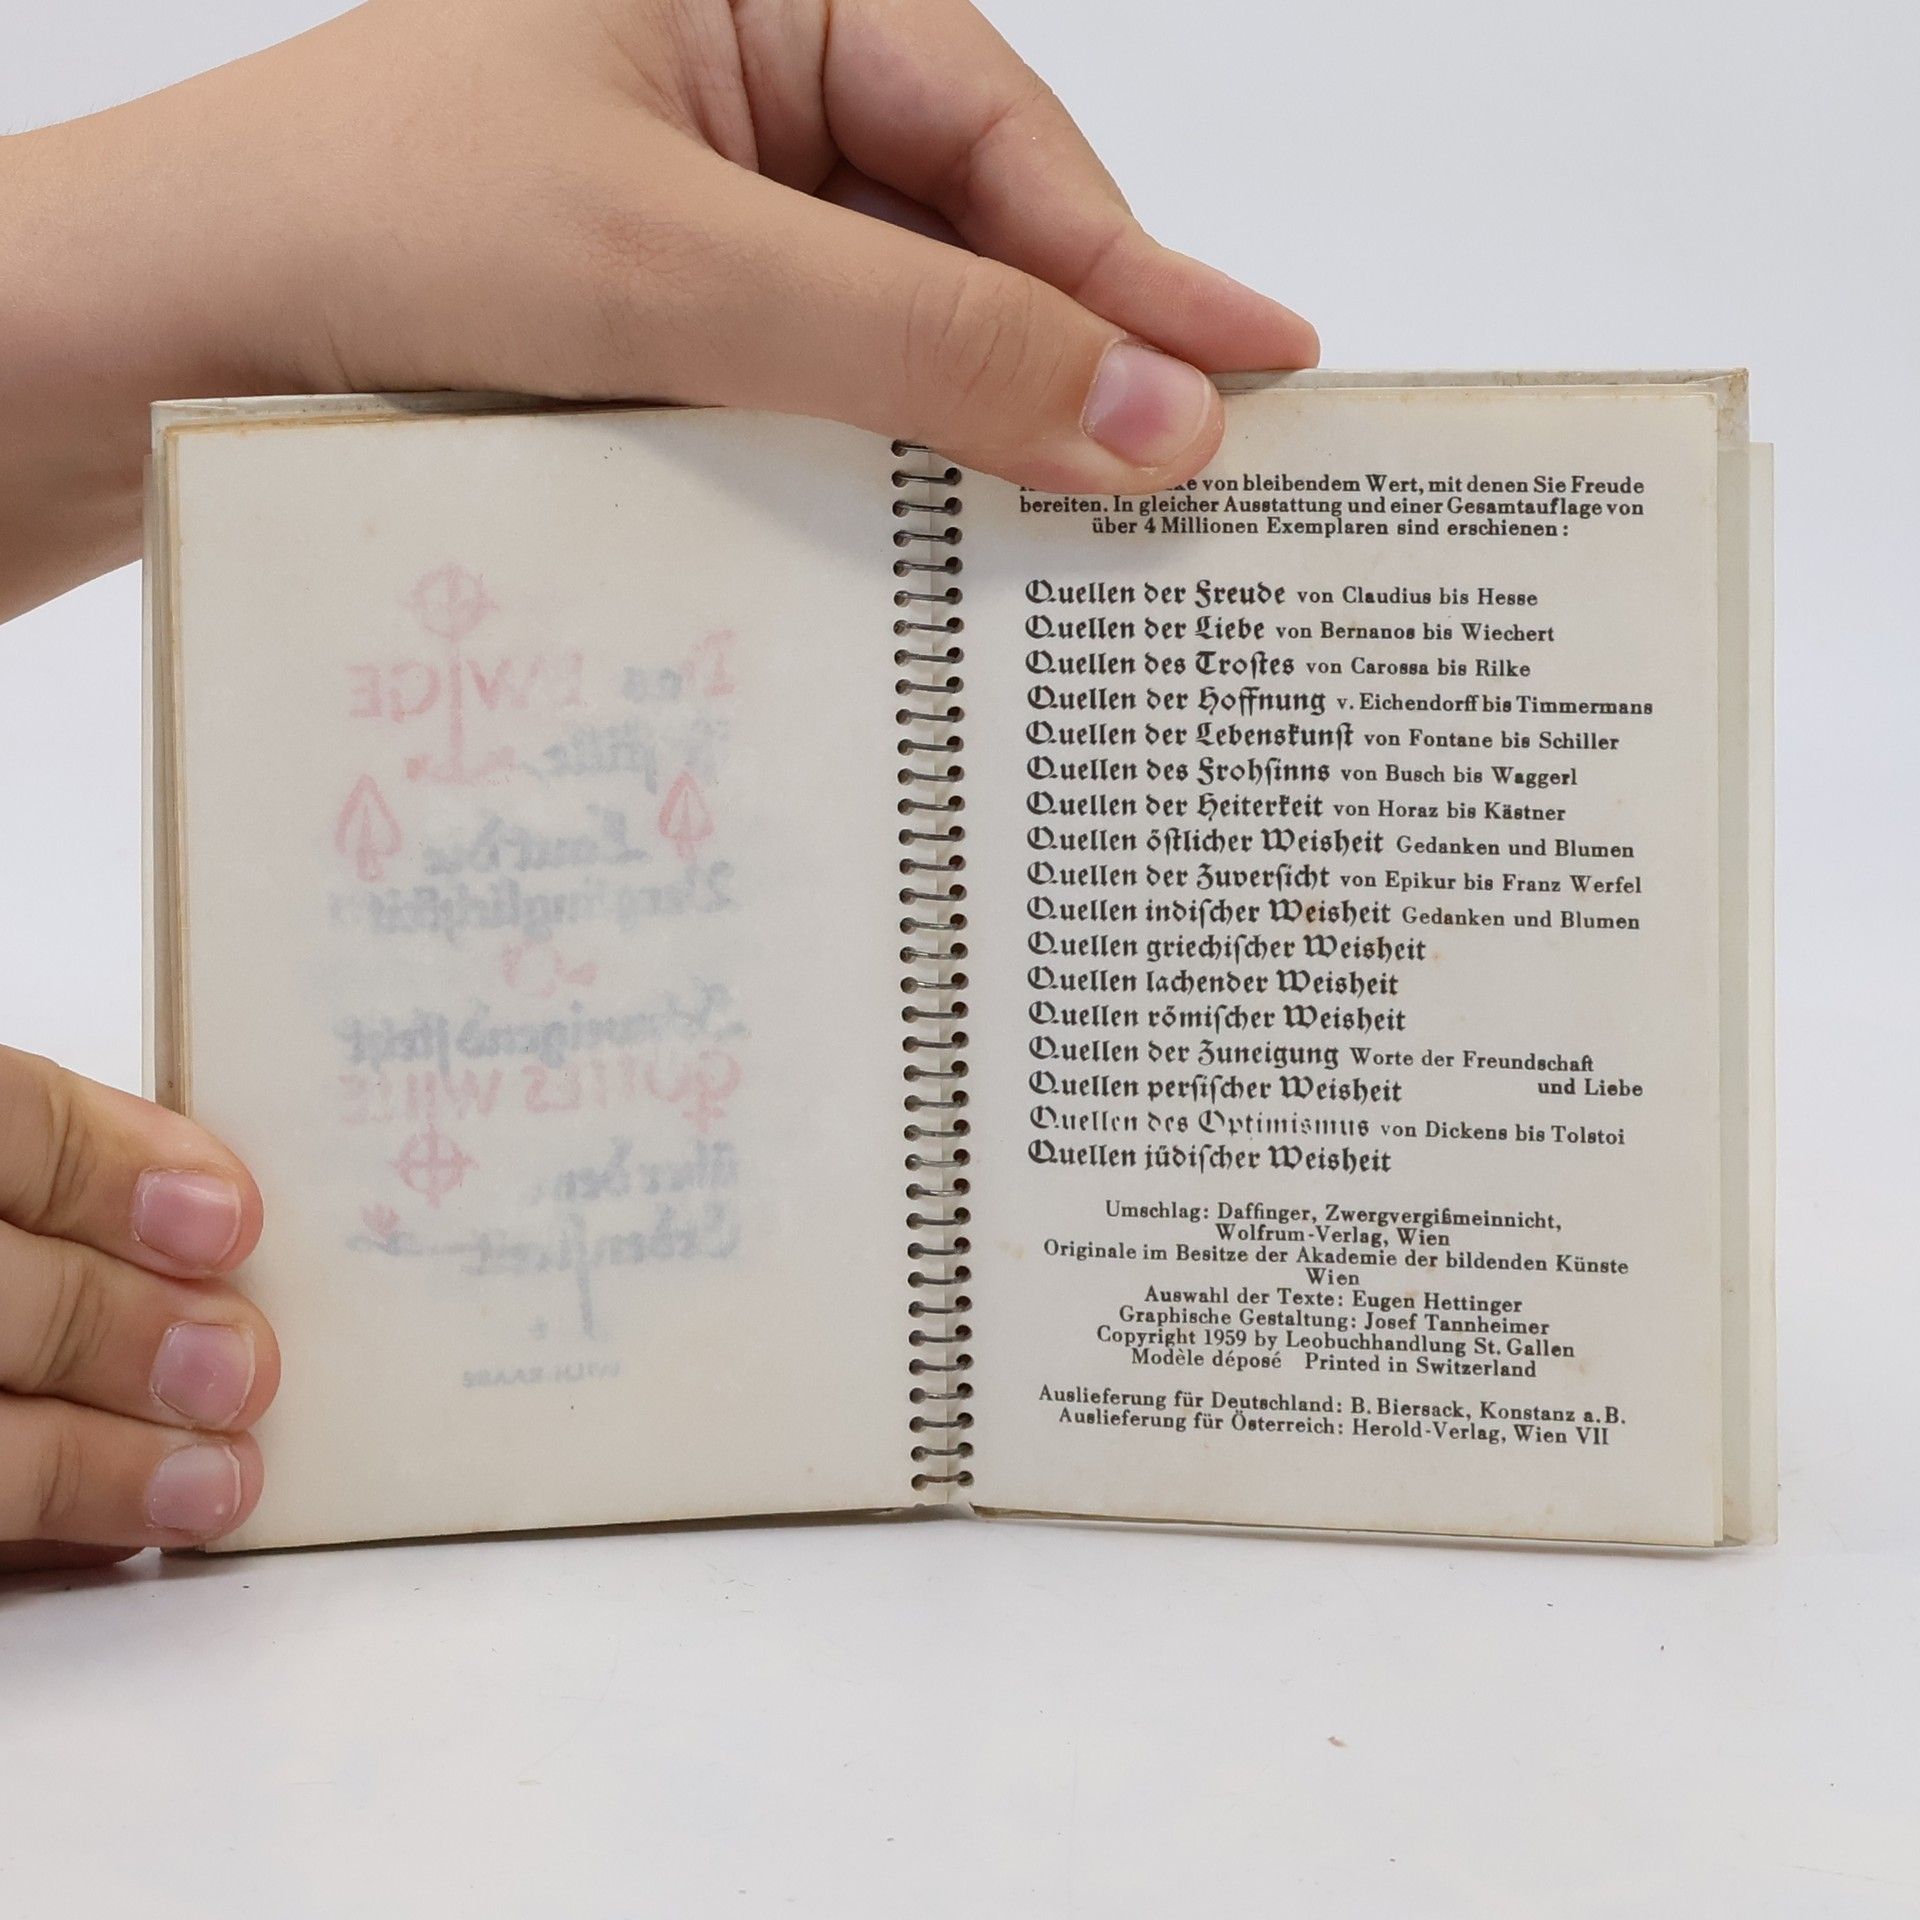 von bleibendem Wert, mit denen Sie Freude
bereiten. In gleicher Ausstattung und einer Gesamtauflage von
über 4 Millionen Exemplaren sind erschienen:
Quellen der Freude von Claudius bis Hesse
Quellen der Liebe von Bernanos bis Wiechert
Quellen des Troſtes von Carossa bis Rilke
Quellen der Hoffnung v. Eichendorff bis Timmermans
Quellen der Lebenskunſt von Fontane bis Schiller
Quellen des Frohſinns von Busch bis Waggerl
Quellen der Heiterkeit von Horaz bis Kästner
Quellen öſtlicher Weisheit Gedanken und Blumen
Quellen der Zuverſicht von Epikur bis Franz Werfel
Quellen indiſcher Weisheit Gedanken und Blumen
Quellen griechiſcher Weisheit
Quellen lachender Weisheit
Quellen römiſcher Weisheit
Quellen der Zuneigung Worte der Freundschaft
Quellen perſiſcher Weisheit und Liebe
Quellen des Optimismus von Dickens bis Tolstoi
Quellen jüdiſcher Weisheit
Umschlag: Daffinger, Zwergvergißmeinnicht,
Wolfrum-Verlag, Wien
Originale im Besitze der Akademie der bildenden Künste
Wien
Auswahl der Texte: Eugen Hettinger
Graphische Gestaltung: Josef Tannheimer
Copyright 1959 by Leobuchhandlung St. Gallen
Modèle déposé Printed in Switzerland
Auslieferung für Deutschland: B. Biersack, Konstanz a. B.
Auslieferung für Österreich: Herold-Verlag, Wien VII